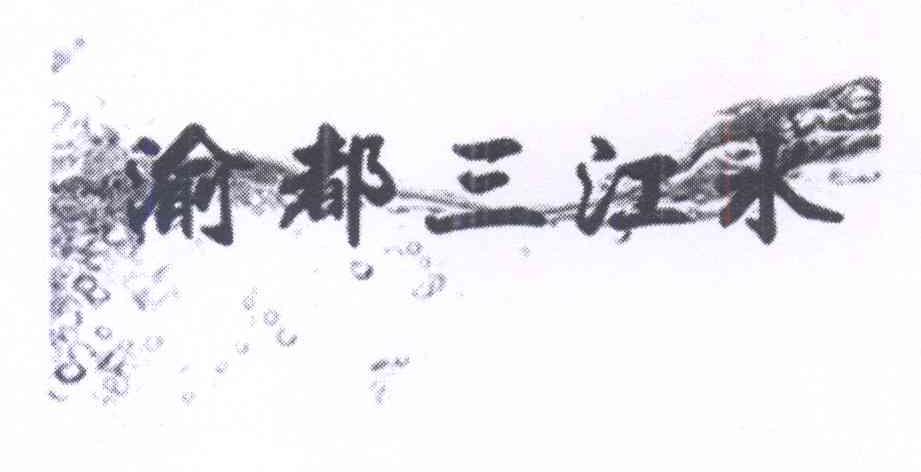 渝都三江水